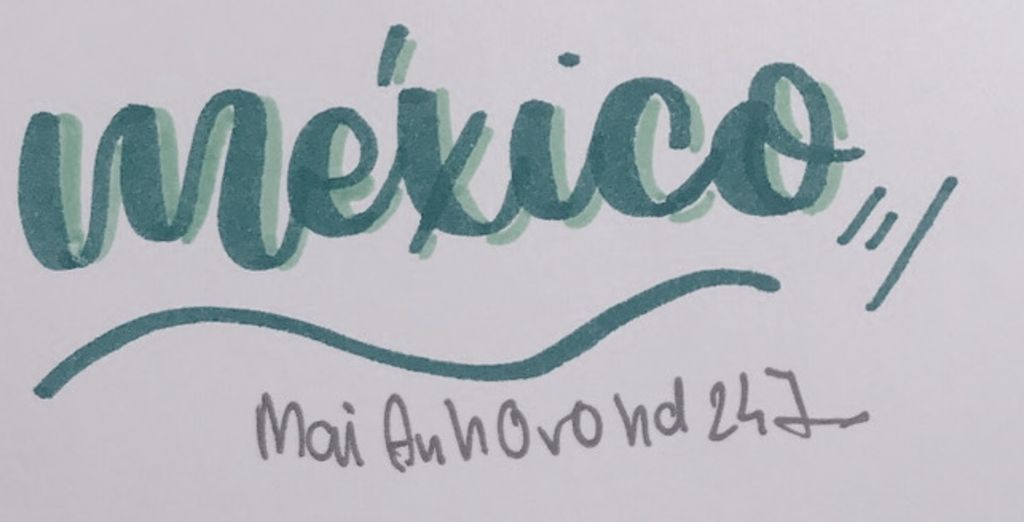 méxico
Mai Anh Ovond 247